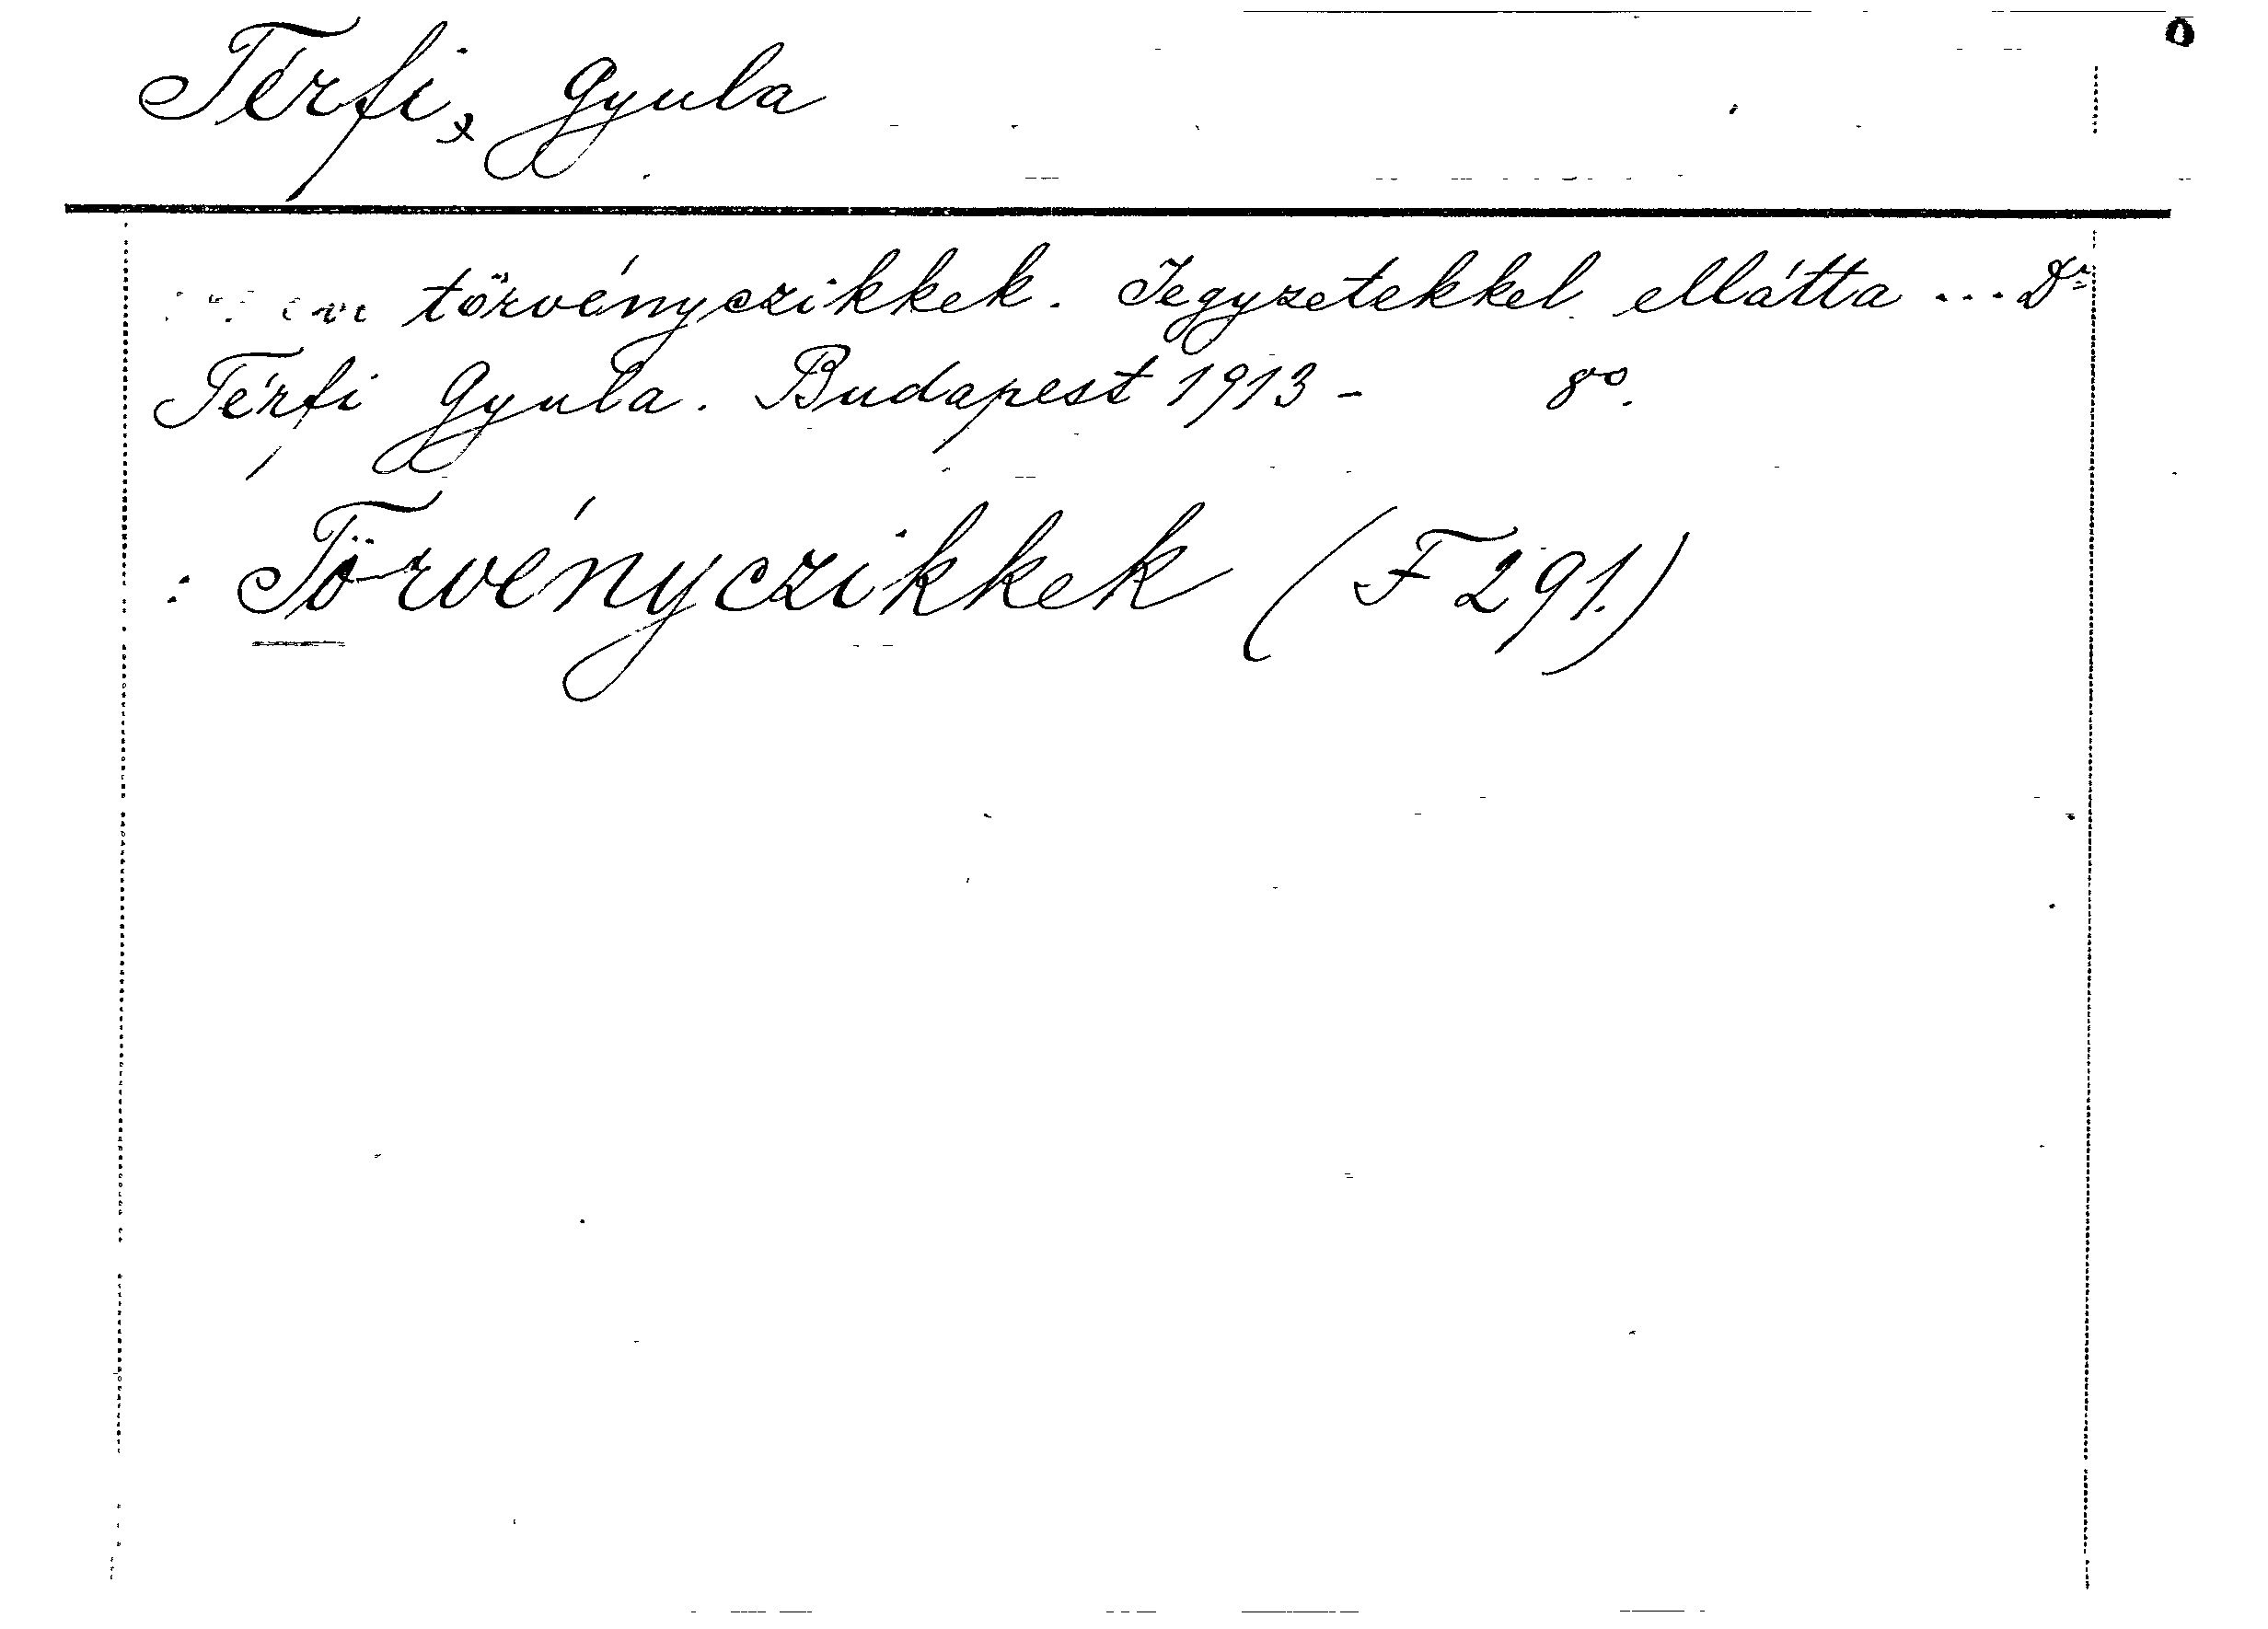 Térfi, Gyula
évi törvényczikkek. Jegyzetekkel ellátta ... Dr
Térfi Gyula. Budapest 1913 - 8º.
: Törvényczikkek (F 291.)